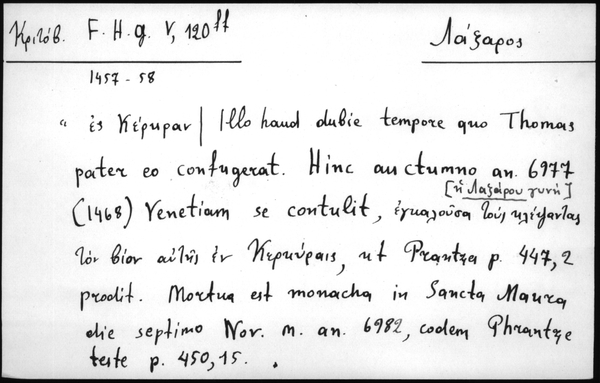 Κριτόβ. F. H. g. V, 120 ff
Λάζαρος
1457 - 58
“ ἐς Κέρκραν | Illo haud dubie tempore quo Thomas
pater eo confugerat. Hinc auctumno an. 6977
[ἡ Λαζάρου γυνή]
(1468) Venetiam se contulit, ἐγκαλοῦσα τοὺς κλέψαντας
τὸν βίον αὐτῆς ἐν Κερκύραις, ut Prantza p. 447, 2
prodit. Mortua est monacha in Sancta Maura
die septimo Nov. m. an. 6982, eodem Phrantze
teste p. 450, 15. .